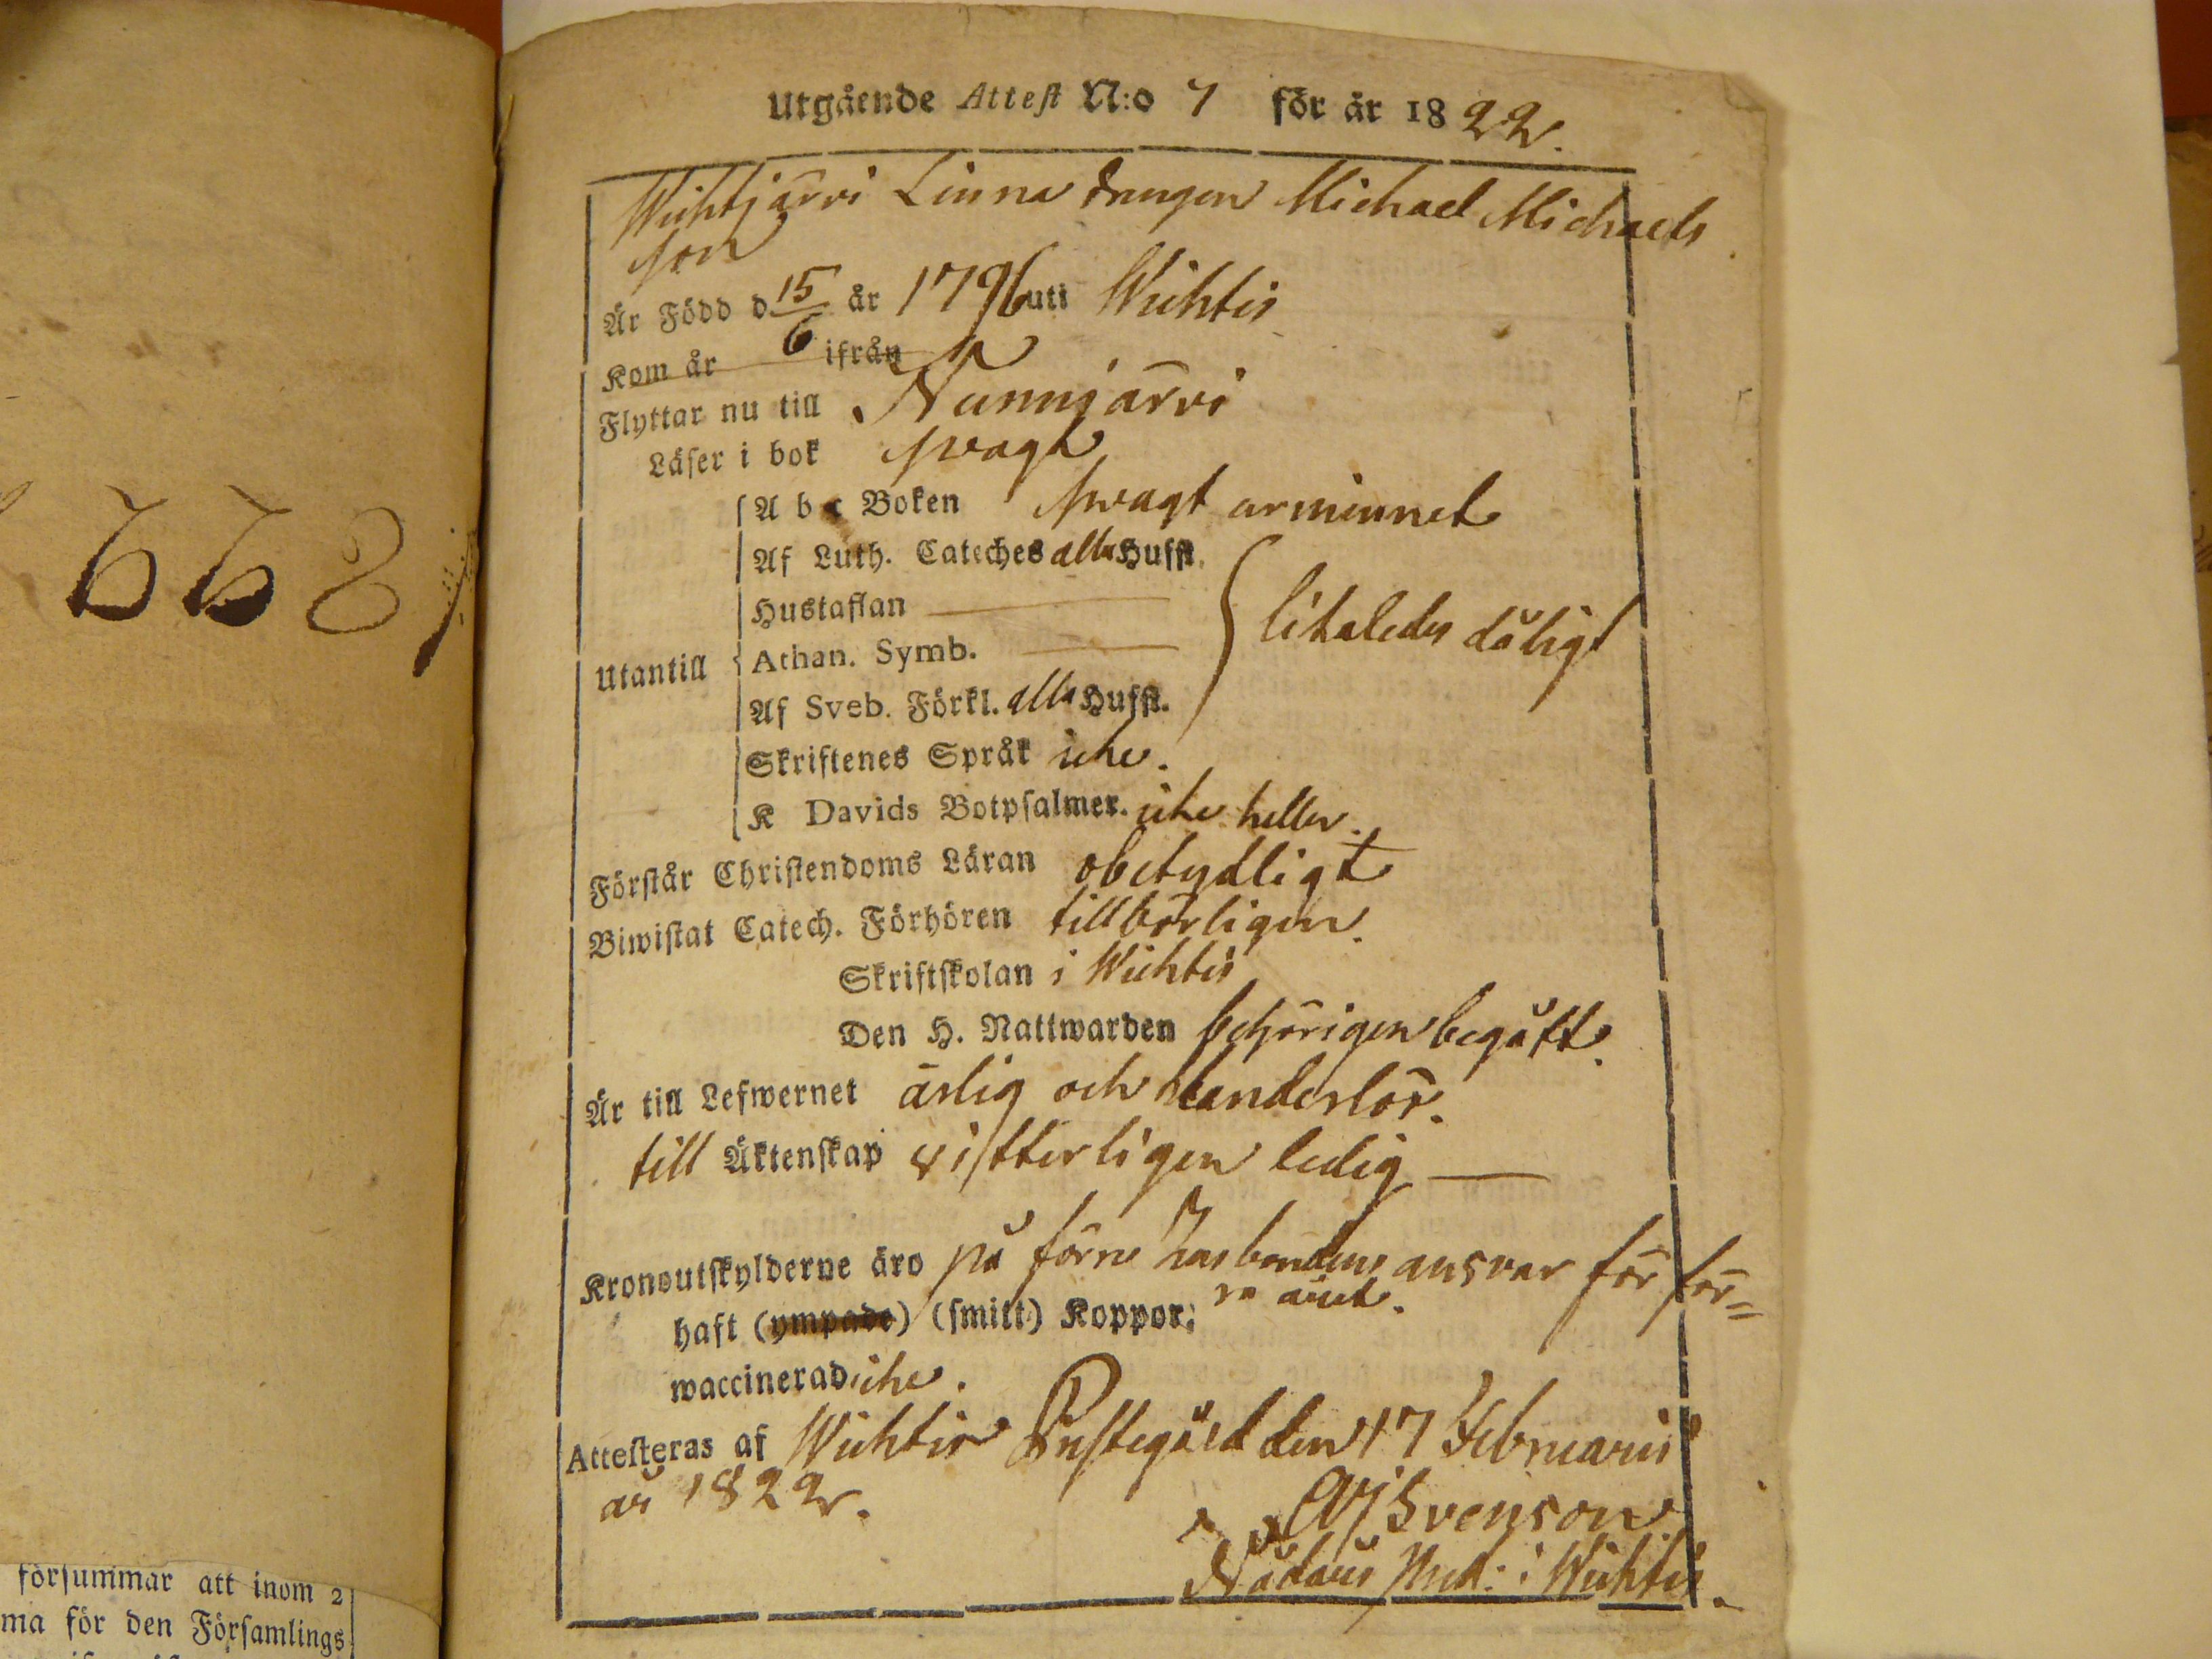 Utgående Attest N:o 7 för år 1822.
Wichtjärvi Linna drengen Michael Michaels
son
Är Född d 15/6 år 1796 uti Wichtis
Kom år ifrån
Flyttar nu till Nummjärvi
Läser i bok svagt
Utantill
A b c Boken svagt urminnet
Af Luth. Cateches alla Hufst.
Hustaflan
Athan. Symb.
likaledes dåligt
Af Sveb. Förkl. alla Hufst.
Skriftenes Språk icke.
K Davids Botpsalmer. icke heller.
Förstår Christendoms Läran obetydligt
Biwistat Catech. Förhören tillbörligen.
Skriftskolan i Wichtis
Den H. Nattwarden behörigen begått.
Är till Lefwernet ärlig och klanderlös.
till Äktenskap vitterligen ledig
Kronoutskylderne äro på förre husbondens ansvar för för=
haft (ympade) (smitt) Koppor;
waccinerad icke.
Attesteras af Wichtis Prestegård den 17 Februarii
år 1822.
Svenson
Nådaårs Pred: i Wichtis.
668
försummar att inom 2
ma för den Församlings